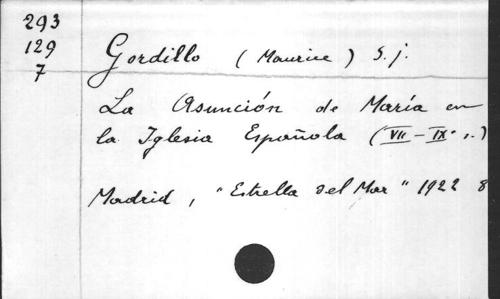 293
129
7
Gordillo (Maurice) S.j.
La Asunción de María en
la Iglesia Española (VII-IXe s.)
Madrid, "Estrella del Mar" 1922 8